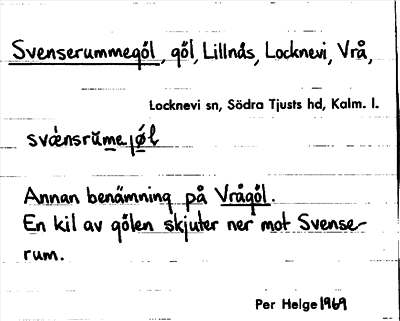 Svenserummegöl, göl, Lillnås, Locknevi, Vrå,
Locknevi sn, Södra Tjusts hd, Kalm. l.
Annan benämning på Vrågöl.
En kil av gölen skjuter ner mot Svense-
rum.
Per Helge 1969